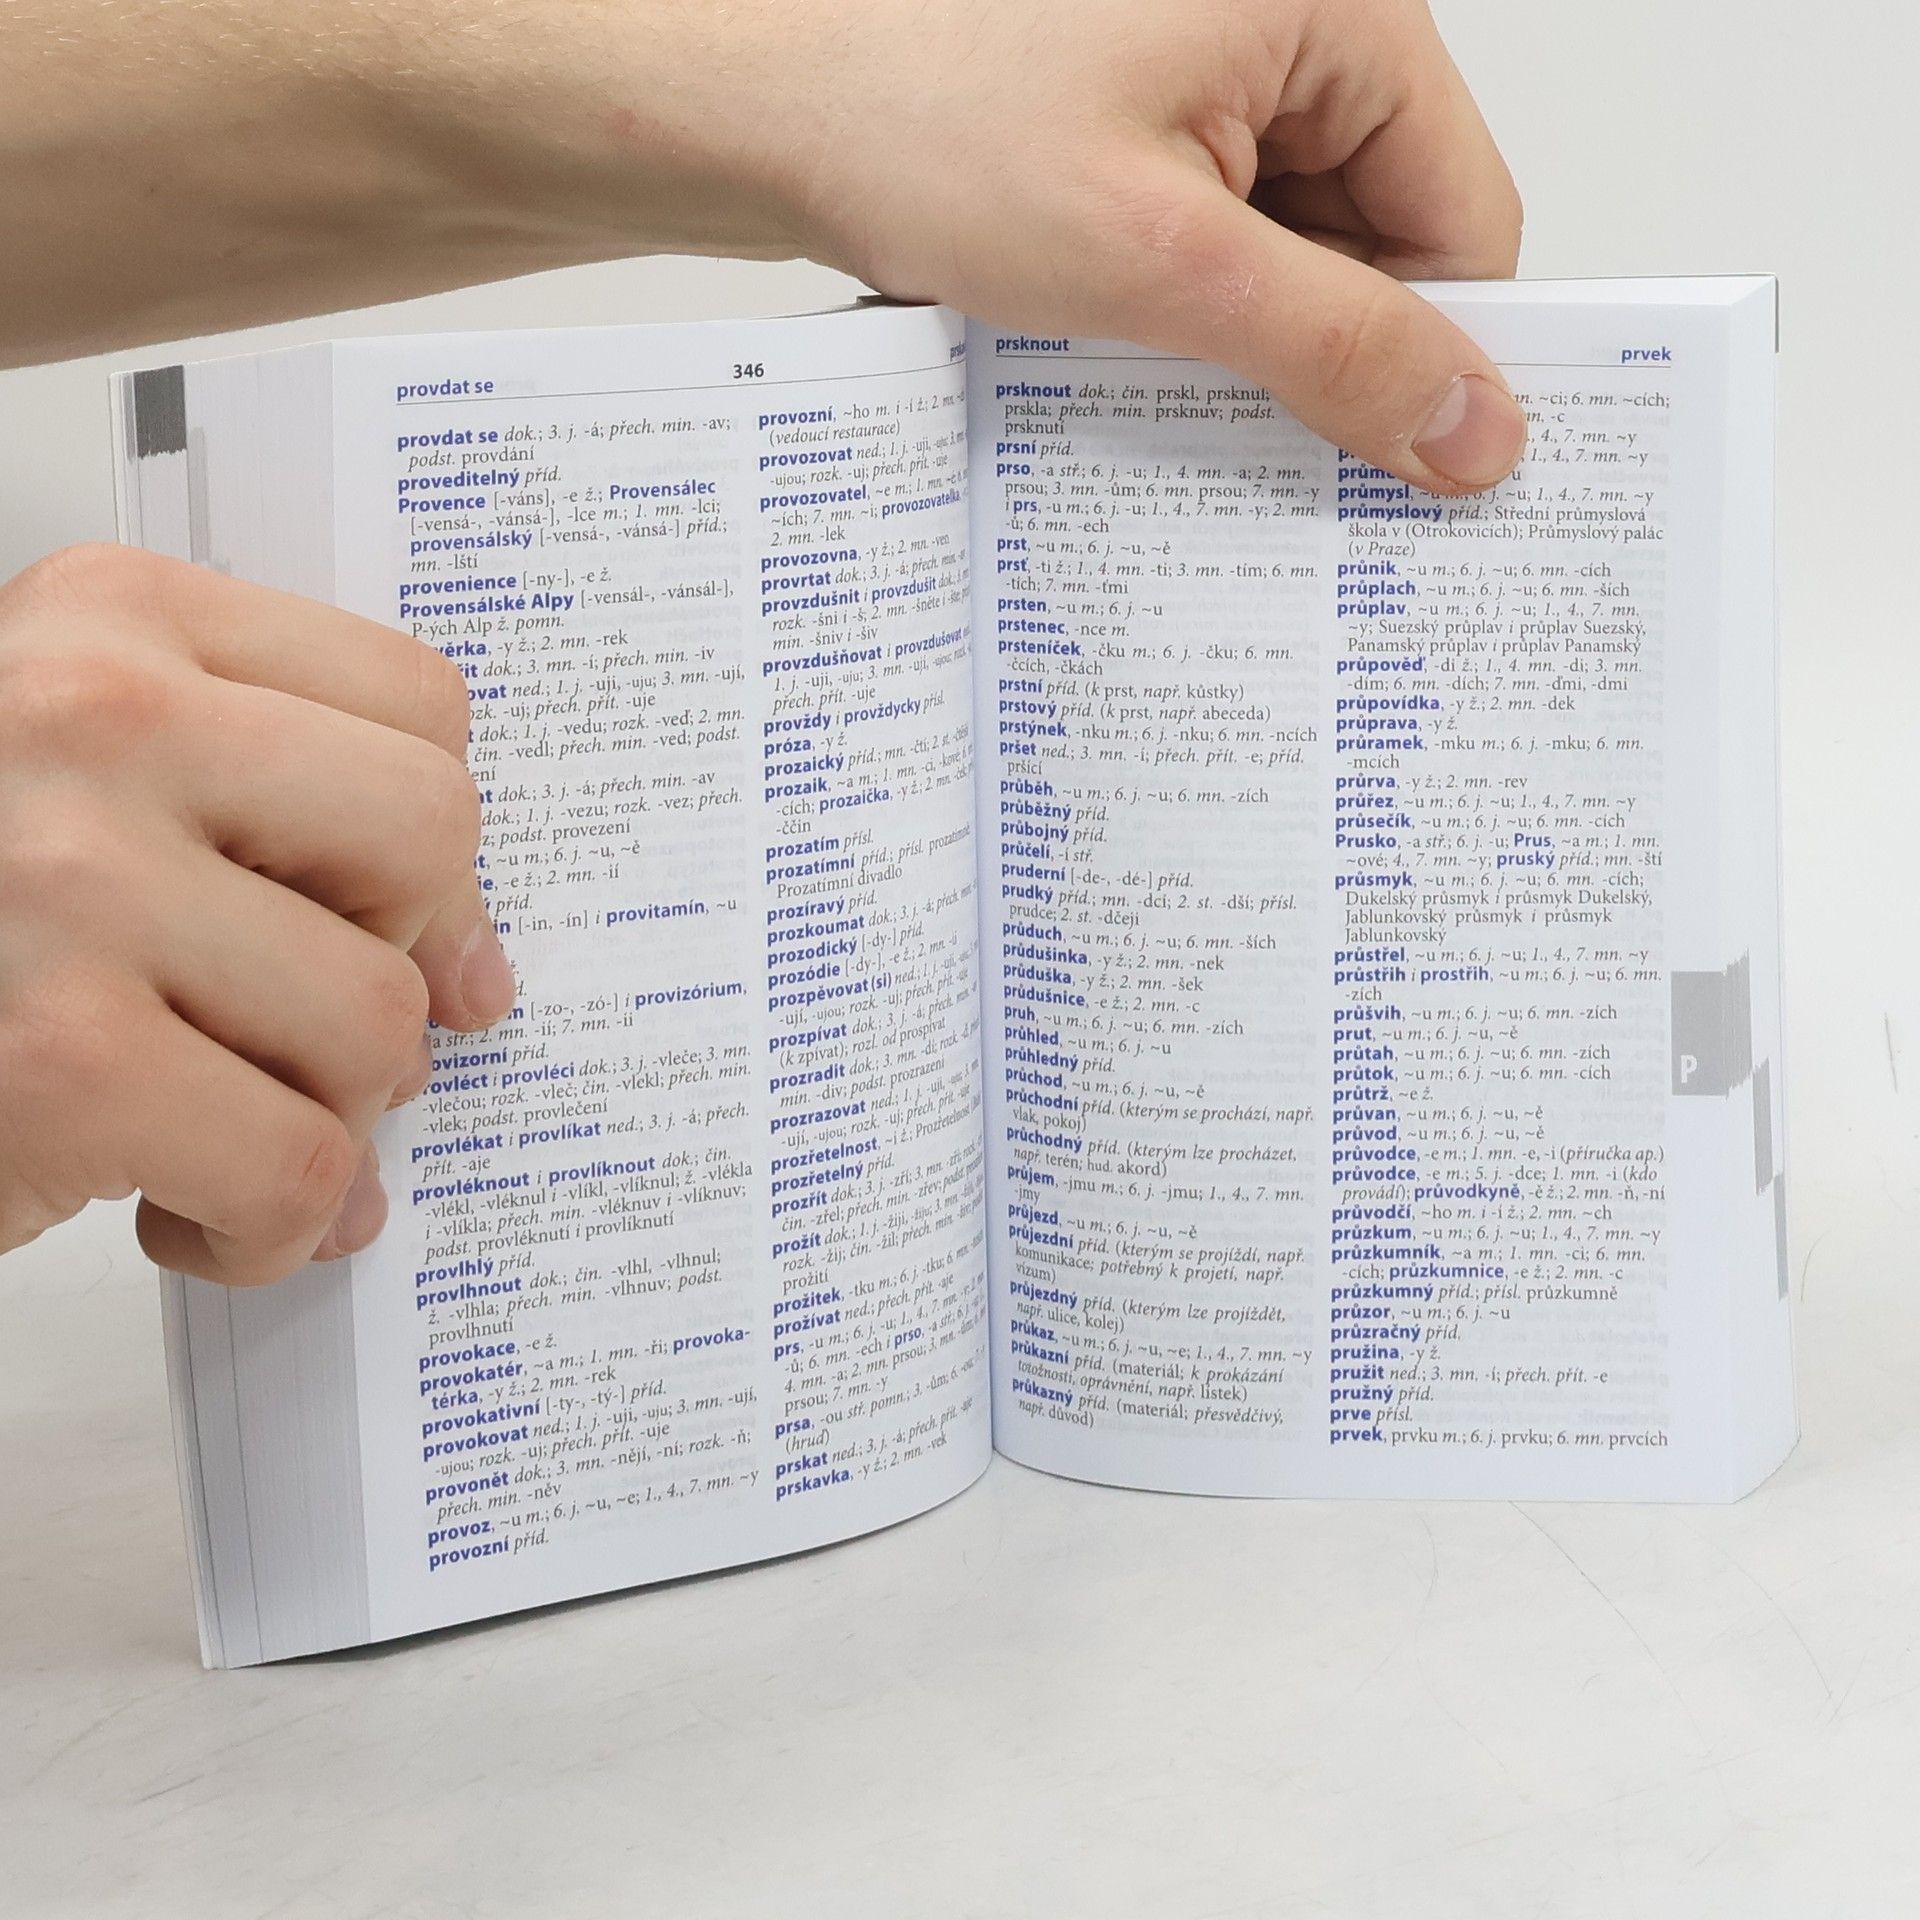 provdat se
346
provdat se dok.; 3. j. -á; přech. min. -av;
podst. provdání
proveditelný příd.
Provence [-váns], -e ž.; Provensálec
[-vensá-, -vánsá-], -lce m.; 1. mn. -lci;
provensálský [-vensá-, -vánsá-] příd.;
mn. -lští
provenience [-ny-], -e ž.
Provensálské Alpy [-vensál-, -vánsál-],
P-ých Alp ž. pomn.
-y ž.; 2. mn. -rek
dok.; 3. mn. -í; přech. min. -iv
ned.; 1. j. -uji, -uju; 3. mn. -ují,
-uj; přech. přít. -uje
dok.; 1. j. -vedu; rozk. -veď; 2. mn.
čin. -vedl; přech. min. -ved; podst.
dok.; 3. j. -á; přech. min. -av
dok.; 1. j. -vezu; rozk. -vez; přech.
podst. provezení
~u m.; 6. j. ~u, ~ě
-e ž.; 2. mn. -ií
příd.
[-in, -ín] i provitamín, ~u
[-zo-, -zó-] i provizórium,
2. mn. -ií; 7. mn. -ii
příd.
i provléci dok.; 3. j. -vleče; 3. mn.
-vlečou; rozk. -vleč; čin. -vlekl; přech. min.
-vlek; podst. provlečení
provlékat i provlíkat ned.; 3. j. -á; přech.
přít. -aje
provléknout i provlíknout dok.; čin.
-vlékl, -vléknul i -vlíkl, -vlíknul; ž. -vlékla
i -vlíkla; přech. min. -vléknuv i -vlíknuv;
podst. provléknutí i provlíknutí
provlhlý příd.
provlhnout dok.; čin. -vlhl, -vlhnul;
ž. -vlhla; přech. min. -vlhnuv; podst.
provlhnutí
provokace, -e ž.
provokatér, ~a m.; 1. mn. -ři; provoka-
térka, -y ž.; 2. mn. -rek
provokativní [-ty-, -tý-] příd.
provokovat ned.; 1. j. -uji, -uju; 3. mn. -ují,
-ujou; rozk. -uj; přech. přít. -uje
provonět dok.; 3. mn. -nějí, -ní; rozk. -ň;
přech. min. -něv
provoz, ~u m.; 6. j. ~u, ~e; 1., 4., 7. mn. ~y
provozní příd.
provozní, ~ho m. i -í ž.; 2. mn.
(vedoucí restaurace)
provozovat ned.; 1. j. -uji, -uju; 3. mn.
-ujou; rozk. -uj; přech. přít. -uje
provozovatel, ~e m.; 1. mn. ~é
~ích; 7. mn. ~i; provozovatelka
2. mn. -lek
provozovna, -y ž.; 2. mn. -ven
provrtat dok.; 3. j. -á; přech. min.
provzdušnit i provzdušit dok.; 3.
rozk. -šni i -š; 2. mn. -šněte i -šte;
min. -šniv i -šiv
provzdušňovat i provzdušovat
1. j. -uji, -uju; 3. mn. -ují, -ujou;
přech. přít. -uje
provždy i provždycky přísl.
próza, -y ž.
prozaický příd.; mn. -čtí; 2. st. -čtější
prozaik, ~a m.; 1. mn. -ci, -kové;
-cích; prozaička, -y ž.; 2. mn. -ček;
-ččin
prozatím přísl.
prozatímní příd.; přísl. prozatímně
Prozatímní divadlo
prozíravý příd.
prozkoumat dok.; 3. j. -á; přech.
prozodický [-dy-] příd.
prozódie [-dy-], -e ž.; 2. mn. -ií
prozpěvovat (si) ned.; 1. j. -uji,
-ují, -ujou; rozk. -uj; přech. přít. -uje
prozpívat dok.; 3. j. -á; přech. min.
(k zpívat); rozl. od prospívat
prozradit dok.; 3. mn. -dí; rozk.
min. -div; podst. prozrazení
prozrazovat ned.; 1. j. -uji, -uju;
-ují, -ujou; rozk. -uj; přech. přít. -uje
prozřetelnost, ~i ž.; Prozřetelnost
prozřetelný příd.
prozřít dok.; 3. j. -zří; 3. mn. -zří;
čin. -zřel; přech. min. -zřev; podst.
prožít dok.; 1. j. -žiji, -žiju; 3. mn.
rozk. -žij; čin. -žil; přech. min.
prožití
prožitek, -tku m.; 6. j. -tku; 6. mn.
prožívat ned.; přech. přít. -aje
prs, -u m.; 6. j. -u; 1., 4., 7. mn. -y; 2. mn.
-ů; 6. mn. -ech i prso, -a stř.; 6. j.
4. mn. -a; 2. mn. prsou; 3. mn. -ům;
prsou; 7. mn. -y
prsa, -ou stř. pomn.; 3. -ům; 6.
(hruď)
prskat ned.; 3. j. -á; přech. přít. -aje
prskavka, -y ž.; 2. mn. -vek
prsknout
prvek
prsknout dok.; čin. prskl, prsknul;
prskla; přech. min. prsknuv; podst.
prsknutí
prsní příd.
prso, -a stř.; 6. j. -u; 1., 4. mn. -a; 2. mn.
prsou; 3. mn. -ům; 6. mn. prsou; 7. mn. -y
i prs, -u m.; 6. j. -u; 1., 4., 7. mn. -y; 2. mn.
-ů; 6. mn. -ech
prst, ~u m.; 6. j. ~u, ~ě
prsť, -ti ž.; 1., 4. mn. -ti; 3. mn. -tím; 6. mn.
-tích; 7. mn. -ťmi
prsten, ~u m.; 6. j. ~u
prstenec, -nce m.
prsteníček, -čku m.; 6. j. -čku; 6. mn.
-čcích, -čkách
prstní příd. (k prst, např. kůstky)
prstový příd. (k prst, např. abeceda)
prstýnek, -nku m.; 6. j. -nku; 6. mn. -ncích
pršet ned.; 3. mn. -í; přech. přít. -e; příd.
pršící
průběh, ~u m.; 6. j. ~u; 6. mn. -zích
průběžný příd.
průbojný příd.
průčelí, -í stř.
pruderní [-de-, -dé-] příd.
prudký příd.; mn. -dcí; 2. st. -dší; přísl.
prudce; 2. st. -dčeji
průduch, ~u m.; 6. j. ~u; 6. mn. -ších
průdušinka, -y ž.; 2. mn. -nek
průduška, -y ž.; 2. mn. -šek
průdušnice, -e ž.; 2. mn. -c
pruh, ~u m.; 6. j. ~u; 6. mn. -zích
průhled, ~u m.; 6. j. ~u
průhledný příd.
průchod, ~u m.; 6. j. ~u, ~ě
průchodní příd. (kterým se prochází, např.
vlak, pokoj)
průchodný příd. (kterým lze procházet,
např. terén; hud. akord)
průjem, -jmu m.; 6. j. -jmu; 1., 4., 7. mn.
-jmy
průjezd, ~u m.; 6. j. ~u, ~ě
průjezdní příd. (kterým se projíždí, např.
komunikace; potřebný k projetí, např.
vízum)
průjezdný příd. (kterým lze projíždět,
např. ulice, kolej)
průkaz, ~u m.; 6. j. ~u, ~e; 1., 4., 7. mn. ~y
průkazní příd. (materiál; k prokázání
totožnosti, oprávnění, např. lístek)
průkazný příd. (materiál; přesvědčivý,
např. důvod)
~ci; 6. mn. ~cích;
-c
4., 7. mn. ~y
1., 4., 7. mn. ~y
průmysl, ~u m.; 6. j. ~u; 1., 4., 7. mn. ~y
průmyslový příd.; Střední průmyslová
škola v (Otrokovicích); Průmyslový palác
(v Praze)
průnik, ~u m.; 6. j. ~u; 6. mn. -cích
průplach, ~u m.; 6. j. ~u; 6. mn. -ších
průplav, ~u m.; 6. j. ~u; 1., 4., 7. mn.
~y; Suezský průplav i průplav Suezský,
Panamský průplav i průplav Panamský
průpověď, -di ž.; 1., 4. mn. -di; 3. mn.
-dím; 6. mn. -dích; 7. mn. -ďmi, -dmi
průpovídka, -y ž.; 2. mn. -dek
průprava, -y ž.
průramek, -mku m.; 6. j. -mku; 6. mn.
-mcích
průrva, -y ž.; 2. mn. -rev
průřez, ~u m.; 6. j. ~u; 1., 4., 7. mn. ~y
průsečík, ~u m.; 6. j. ~u; 6. mn. -cích
Prusko, -a stř.; 6. j. -u; Prus, ~a m.; 1. mn.
~ové; 4., 7. mn. ~y; pruský příd.; mn. -ští
průsmyk, ~u m.; 6. j. ~u; 6. mn. -cích;
Dukelský průsmyk i průsmyk Dukelský,
Jablunkovský průsmyk i průsmyk
Jablunkovský
průstřel, ~u m.; 6. j. ~u; 1., 4., 7. mn. ~y
průstřih i prostřih, ~u m.; 6. j. ~u; 6. mn.
-zích
průšvih, ~u m.; 6. j. ~u; 6. mn. -zích
prut, ~u m.; 6. j. ~u, ~ě
průtah, ~u m.; 6. j. ~u; 6. mn. -zích
průtok, ~u m.; 6. j. ~u; 6. mn. -cích
průtrž, ~e ž.
průvan, ~u m.; 6. j. ~u, ~ě
průvod, ~u m.; 6. j. ~u, ~ě
průvodce, -e m.; 1. mn. -e, -i (příručka ap.)
průvodce, -e m.; 5. j. -dce; 1. mn. -i (kdo
provádí); průvodkyně, -ě ž.; 2. mn. -ň, -ní
průvodčí, ~ho m. i -í ž.; 2. mn. ~ch
průzkum, ~u m.; 6. j. ~u; 1., 4., 7. mn. ~y
průzkumník, ~a m.; 1. mn. -ci; 6. mn.
-cích; průzkumnice, -e ž.; 2. mn. -c
průzkumný příd.; přísl. průzkumně
průzor, ~u m.; 6. j. ~u
průzračný příd.
pružina, -y ž.
pružit ned.; 3. mn. -í; přech. přít. -e
pružný příd.
prve přísl.
prvek, prvku m.; 6. j. prvku; 6. mn. prvcích
P